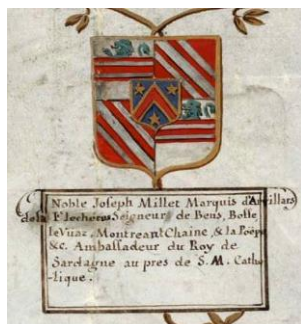 Noble Joseph Millet Marquis d'Arvillars
de la F lecherés Seigneur de Beus, Bosse,
le Vuaz, Montreant Chaine, & la Poëpe
&c. Ambassadeur du Roy de
Sardagne au pres de S. M. Catho
-lique.